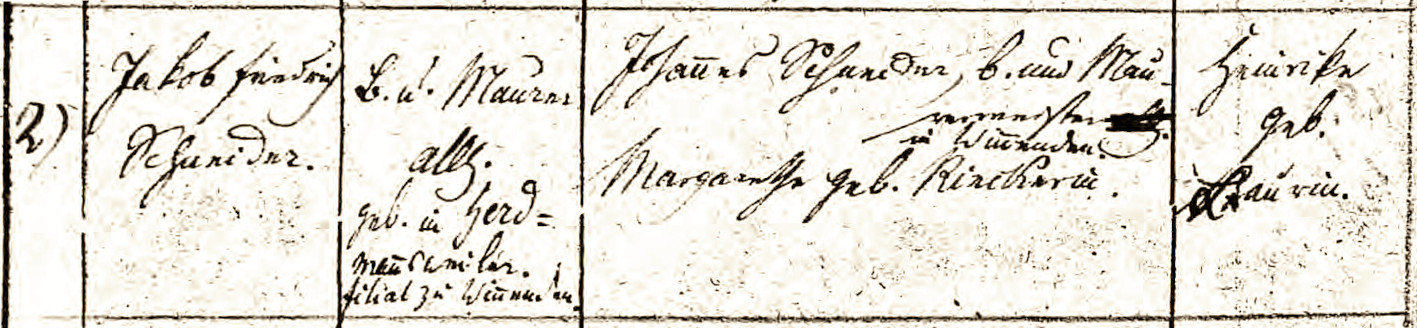 2)
Jakob Friedrich
Schneider.
B. u. Maurer
allh.
geb. in Herd=
mañsweiler.
filial zu Wiñenden.
Johañes Schneider, b. und Mau-
rermeister
in Wiñenden.
Margarethe geb. Rincherin.
Heinrike
geb.
Baurin.